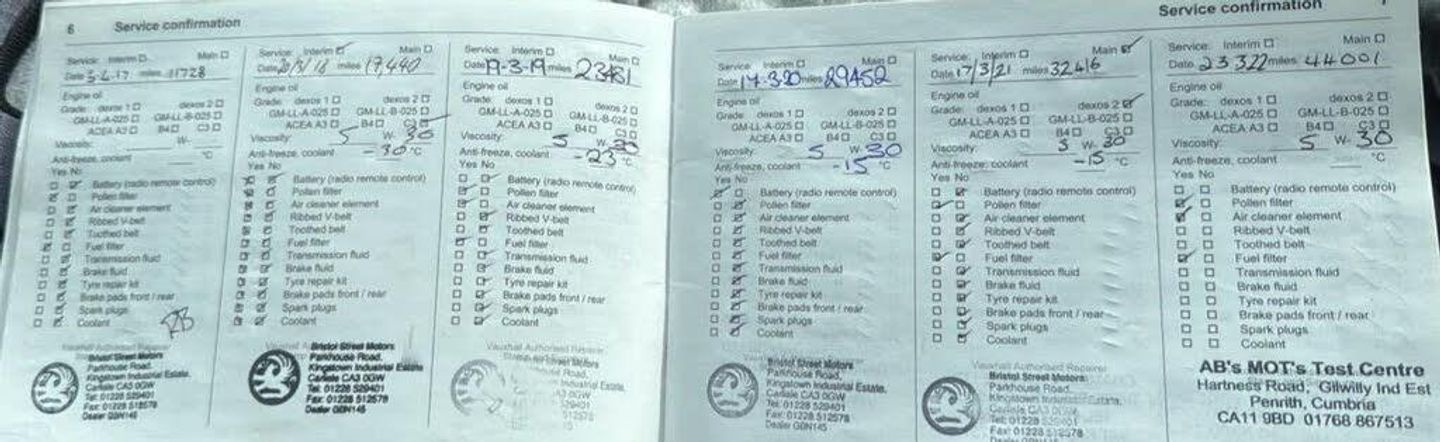 6 Service confirmation
Service: Interim Main
Date 3-4-17 miles 11728
Engine oil
Grade: dexos 1 dexos 2
GM-LL-A-025 GM-LL-B-025
ACEA A3 B4 C3
Viscosity: W-
Anti-freeze, coolant °C
Yes No
Battery (radio remote control)
Pollen filter
Air cleaner element
Ribbed V-belt
Toothed belt
Fuel filter
Transmission fluid
Brake fluid
Tyre repair kit
Brake pads front / rear
Spark plugs
Coolant
Vauxhall Authorised Repairer
Bristol Street Motors
Parkhouse Road,
Kingstown Industrial Estate,
Carlisle CA3 0GW
Tel: 01228 529401
Fax: 01228 512578
Dealer G0N145
Service: Interim Main
Date 20/3/18 miles 17,440
Engine oil
Grade: dexos 1 dexos 2
GM-LL-A-025 GM-LL-B-025
ACEA A3 B4 C3
Viscosity: 5 W- 30
Anti-freeze, coolant -30 °C
Yes No
Battery (radio remote control)
Pollen filter
Air cleaner element
Ribbed V-belt
Toothed belt
Fuel filter
Transmission fluid
Brake fluid
Tyre repair kit
Brake pads front / rear
Spark plugs
Coolant
Vauxhall Authorised Repairer
Bristol Street Motors
Parkhouse Road,
Kingstown Industrial Estate
Carlisle CA3 0GW
Tel: 01228 529401
Fax: 01228 512578
Dealer G0N145
Service: Interim Main
Date 19-3-19 miles 23481
Engine oil
Grade: dexos 1 dexos 2
GM-LL-A-025 GM-LL-B-025
ACEA A3 B4 C3
Viscosity: 5 W- 30
Anti-freeze, coolant -23 °C
Yes No
Battery (radio remote control)
Pollen filter
Air cleaner element
Ribbed V-belt
Toothed belt
Fuel filter
Transmission fluid
Brake fluid
Tyre repair kit
Brake pads front / rear
Spark plugs
Coolant
Vauxhall Authorised Repairer
Street Motors
Road,
Industrial Estate,
0GW
512578
Service confirmation
Service: Interim Main
Date 17-3-20 miles 29452
Engine oil
Grade: dexos 1 dexos 2
GM-LL-A-025 GM-LL-B-025
ACEA A3 B4 C3
Viscosity: 5 W- 30
Anti-freeze, coolant -15 °C
Yes No
Battery (radio remote control)
Pollen filter
Air cleaner element
Ribbed V-belt
Toothed belt
Fuel filter
Transmission fluid
Brake fluid
Tyre repair kit
Brake pads front / rear
Spark plugs
Coolant
Bristol Street Motors
Parkhouse Road,
Kingstown Industrial Estate,
Carlisle CA3 0GW
Tel: 01228 529401
Fax: 01228 512578
Dealer G0N145
Service: Interim Main
Date 17/3/21 miles 32416
Engine oil
Grade: dexos 1 dexos 2
GM-LL-A-025 GM-LL-B-025
ACEA A3 B4 C3
Viscosity: 5 W- 30
Anti-freeze, coolant -15 °C
Yes No
Battery (radio remote control)
Pollen filter
Air cleaner element
Ribbed V-belt
Toothed belt
Fuel filter
Transmission fluid
Brake fluid
Tyre repair kit
Brake pads front / rear
Spark plugs
Coolant
Vauxhall Authorised Repairer
Bristol Street Motors
Parkhouse Road,
Kingstown Industrial Estate,
Carlisle CA3 0GW
Tel: 01228 529401
Fax: 01228 512578
Dealer G0N145
Service: Interim Main
Date 23 3 22 miles 44001
Engine oil
Grade: dexos 1 dexos 2
GM-LL-A-025 GM-LL-B-025
ACEA A3 B4 C3
Viscosity: 5 W- 30
Anti-freeze, coolant °C
Yes No
Battery (radio remote control)
Pollen filter
Air cleaner element
Ribbed V-belt
Toothed belt
Fuel filter
Transmission fluid
Brake fluid
Tyre repair kit
Brake pads front / rear
Spark plugs
Coolant
AB's MOT's Test Centre
Hartness Road, Gilwilly Ind Est
Penrith, Cumbria
CA11 9BD 01768 867513